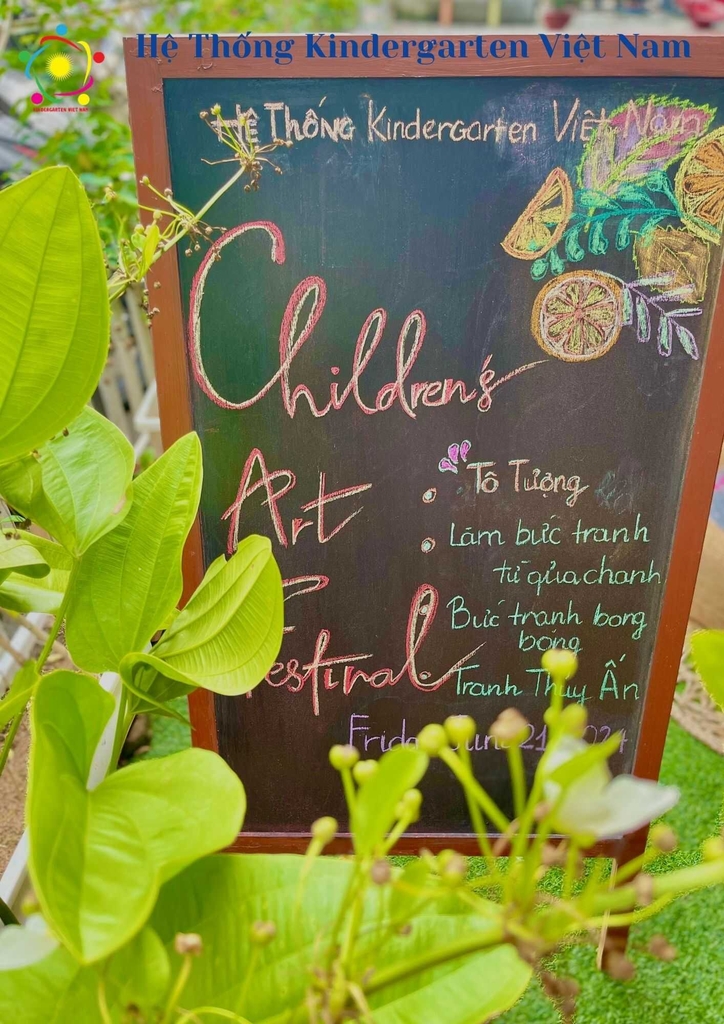 Hệ Thống Kindergarten Việt Nam
KINDERGARTEN VIET NAM
Hệ Thống Kindergarten Việt Nam
Children's
Art
Festival
Tô Tượng
Làm bức tranh
từ qủa chanh
Bức tranh bong
bóng
Tranh Thủy Ấn
Friday June 21 2024